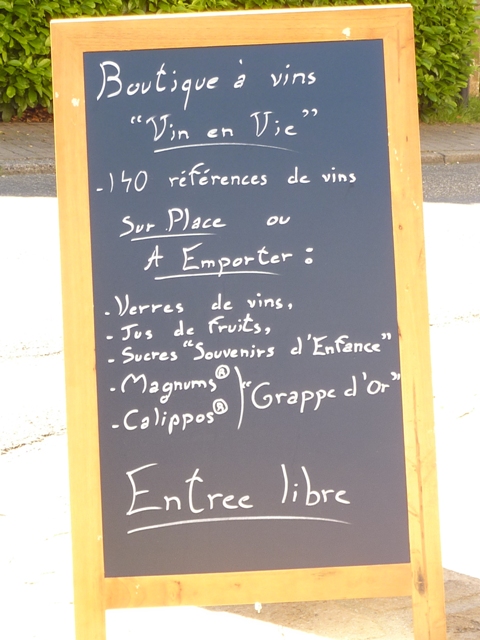 Boutique à vins
"Vin en Vie"
-140 références de vins
Sur Place ou
A Emporter :
- Verres de vins,
- Jus de fruits,
- Sucres "Souvenirs d'Enfance"
- Magnums®
- Calippos® ) "Grappe d'Or"
Entree libre